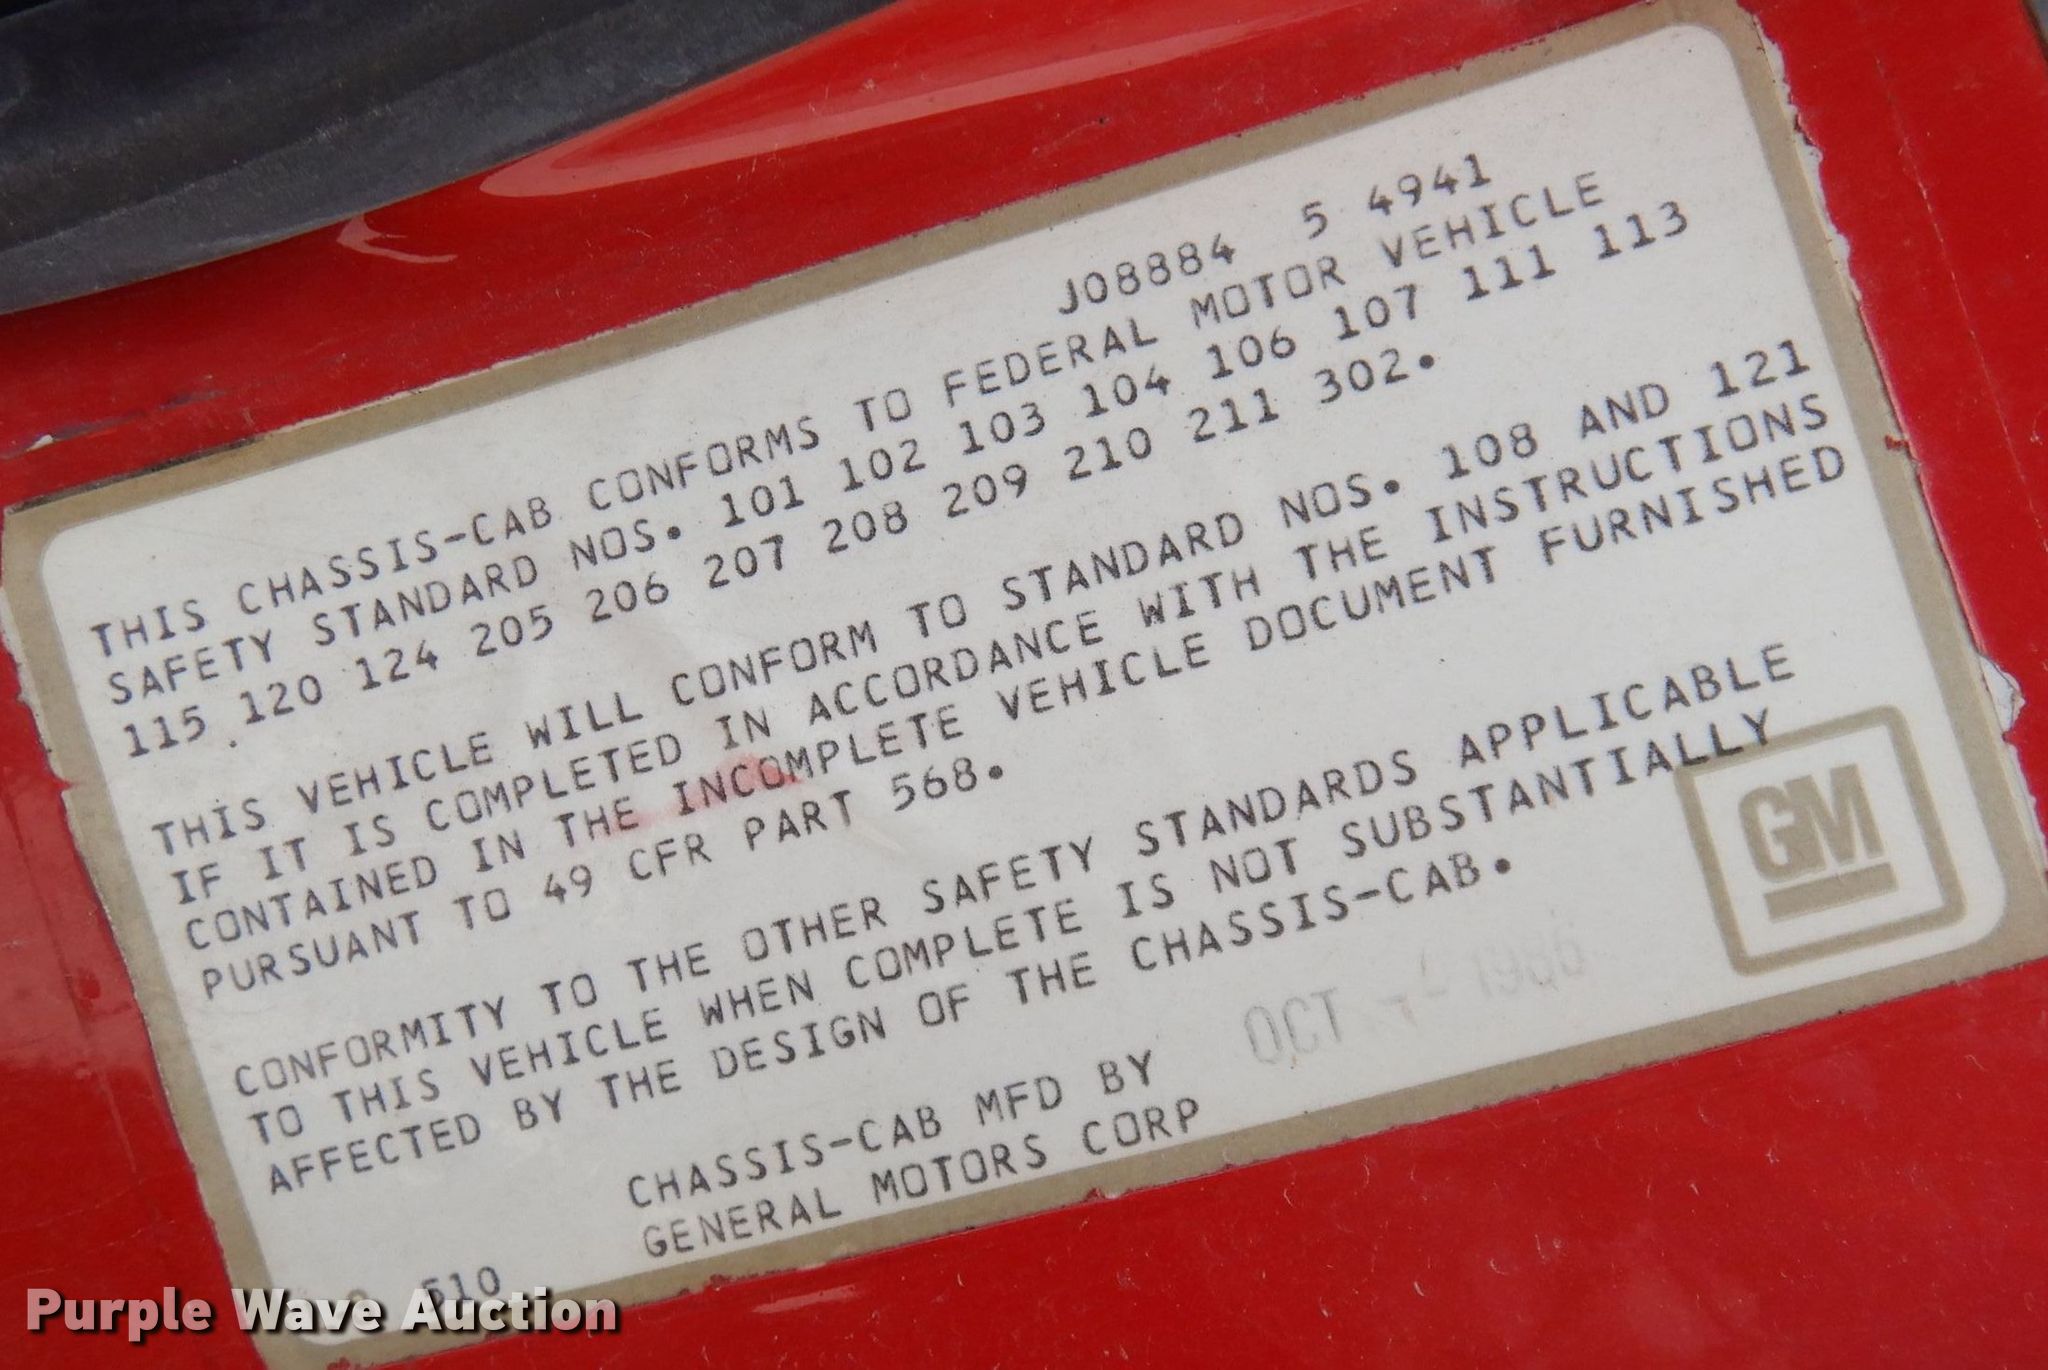 J08884 5 4941
THIS CHASSIS-CAB CONFORMS TO FEDERAL MOTOR VEHICLE
SAFETY STANDARD NOS. 101 102 103 104 106 107 111 113
115 120 124 205 206 207 208 209 210 211 302.
THIS VEHICLE WILL CONFORM TO STANDARD NOS. 108 AND 121
IF IT IS COMPLETED IN ACCORDANCE WITH THE INSTRUCTIONS
CONTAINED IN THE INCOMPLETE VEHICLE DOCUMENT FURNISHED
PURSUANT TO 49 CFR PART 568.
CONFORMITY TO THE OTHER SAFETY STANDARDS APPLICABLE
TO THIS VEHICLE WHEN COMPLETE IS NOT SUBSTANTIALLY
AFFECTED BY THE DESIGN OF THE CHASSIS-CAB.
GM
OCT 1986
CHASSIS-CAB MFD BY
GENERAL MOTORS CORP
510
Purple Wave Auction